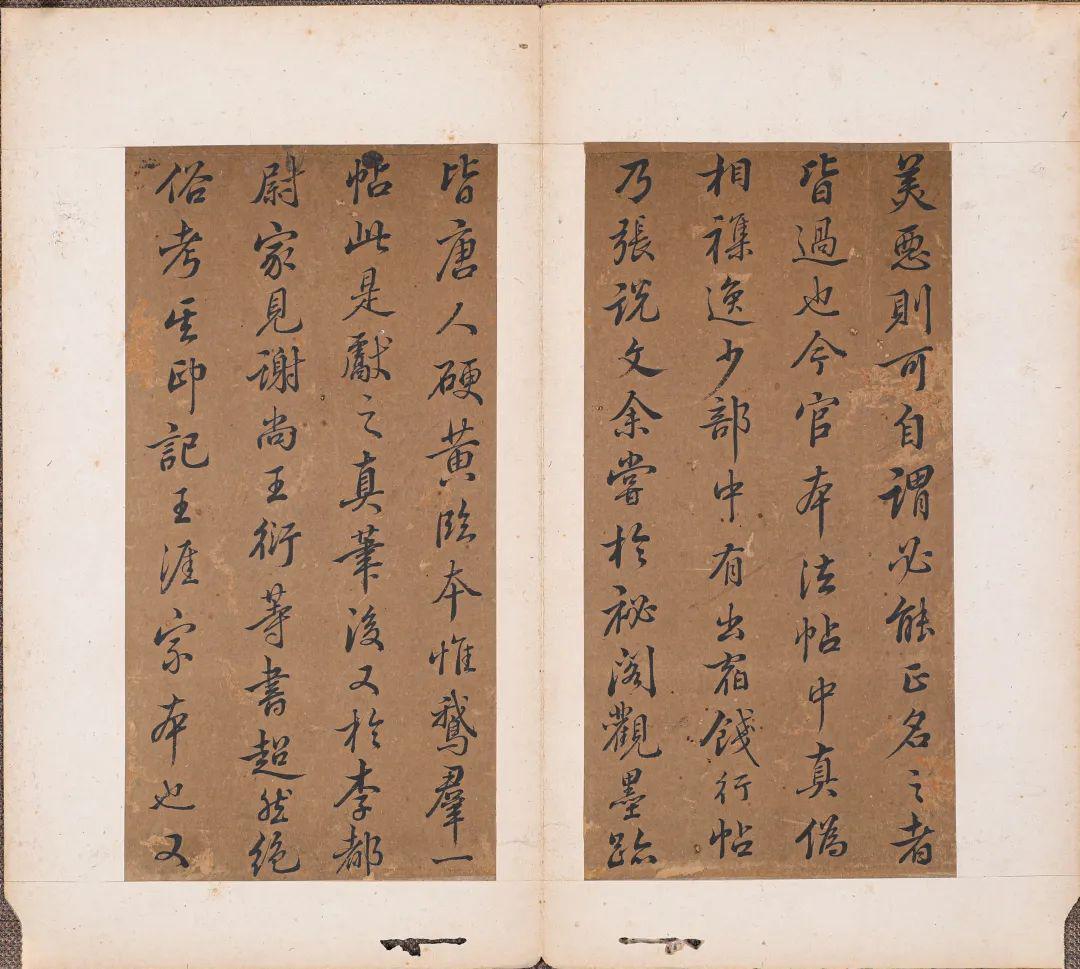 美惡則可自謂必能正名之者
皆過也今官本法帖中真偽
相襍逸少部中有出宿餞行帖
乃張說文余嘗於祕閣觀墨跡
皆唐人硬黃臨本惟鵝羣一
帖此是獻之真筆後又於李都
尉家見謝尚王衍等書超然絕
俗考其印記王涯家本也又